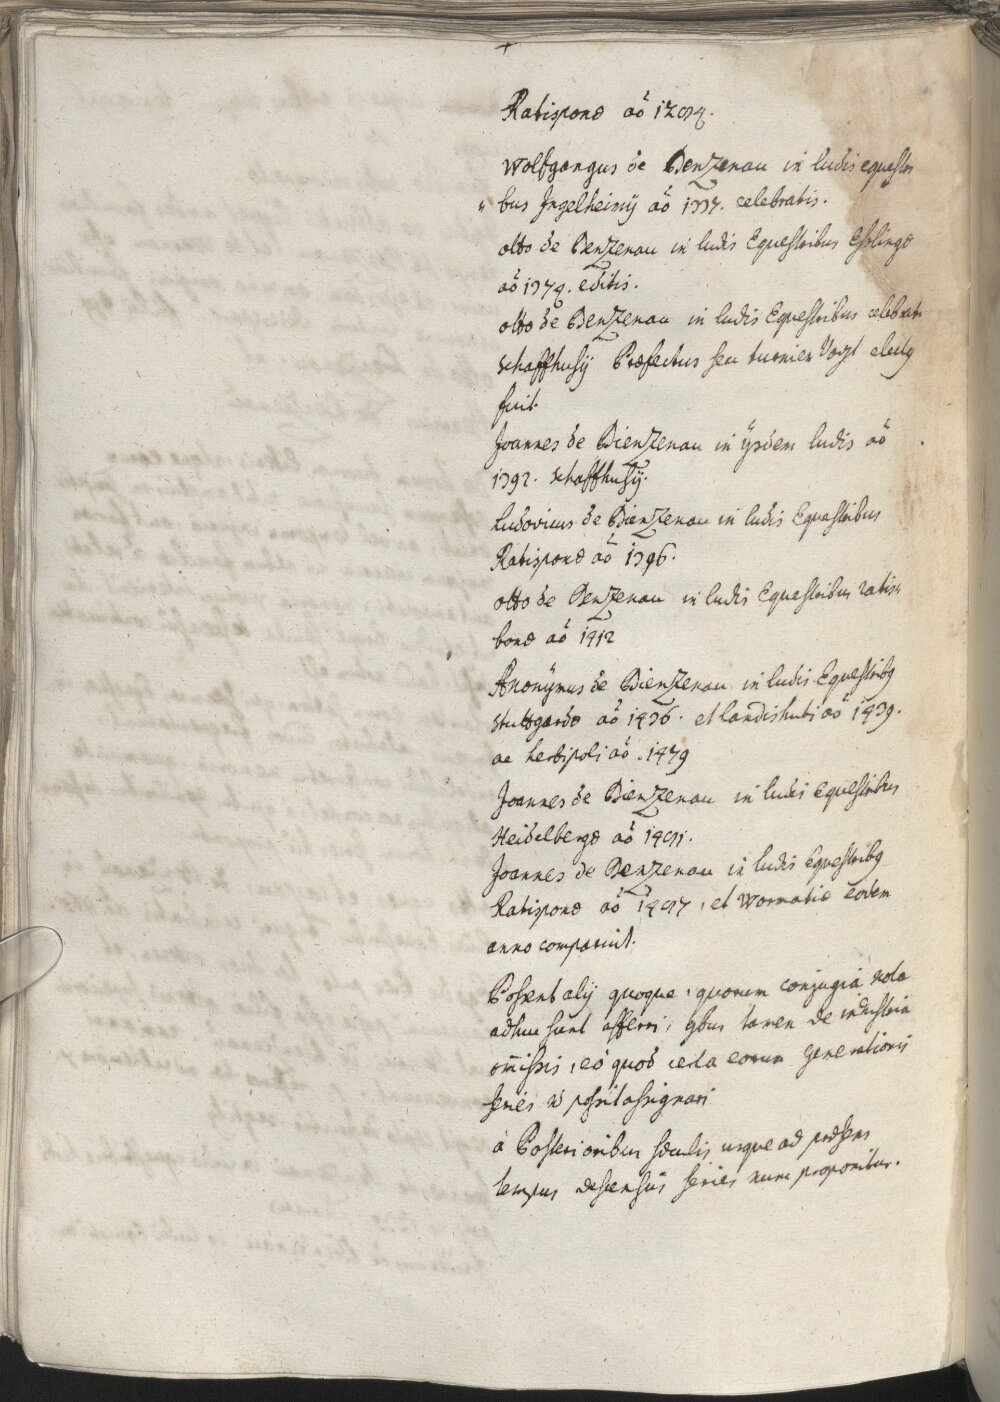 Ratisponæ aõ 1284.
Wolfgangus de Bienzenau in ludis equestri
bus Ingelheimij aõ 1337. celebratis.
otto de Benzenau in ludis Equestribus Eslingæ
aõ 1374. editis.
otto de Benzenau in ludis Equestribus celebrati
schaffhusij Præfectus seu turnier Vogt electq
fuit.
Joannes de Bienzenau in ijsdem ludis aõ
1392. schaffhusij.
Ludovicus de Bienzenau in ludis Equestribus
Ratisponæ aõ 1396.
otto de Benzenau in ludis Equestribus ratis
bonæ aõ 1412
Anonÿmus de Bienzenau in ludis Equestribq
stuttgardæ aõ 1436. et landishuti aõ 1439.
ac herbipoli aõ. 1479
Joannes de Bienzenau in ludis equestribus
Heidelbergæ aõ 1481.
Joannes de Benzenau in ludis Equestribq
Ratisponæ aõ 1487, et Wormatiæ eodem
anno comparuit.
Possent alij quoque, quorum conjugia nota
adhuc sunt afferri, qbus tamen de industria
om̃issis, eò quod certa eorum generationis
series ñ possit assignari
à Posterioribus sæculis usque ad præsens
tempus descensûs series nunc proponitur.